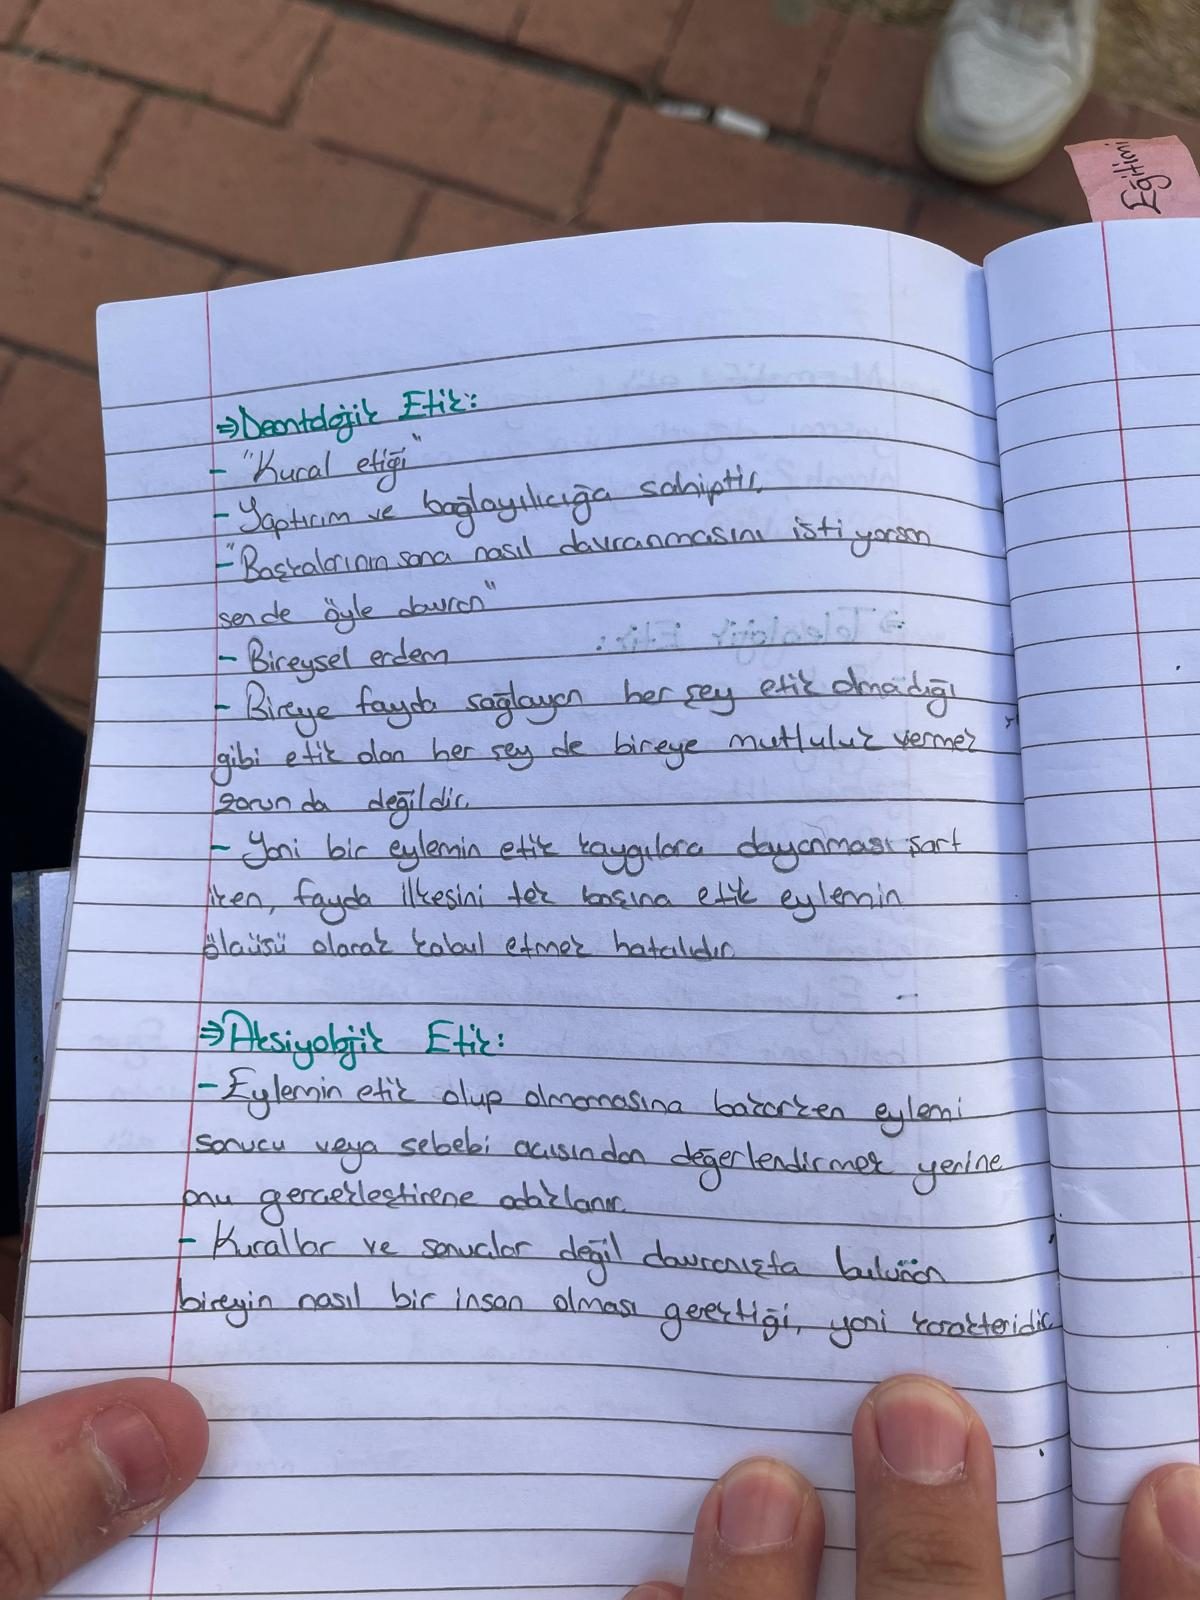 Eğitimi
⇒Deontolojik Etik:
- "Kural etiği"
- Yaptırım ve bağlayılıcığa sahiptir.
- "Başkalarının sana nasıl davranmasını istiyorsan
sende öyle davran"
- Bireysel erdem
- Bireye fayda sağlayan her şey etik olmadığı
gibi etik olan her şey de bireye mutluluk vermek
zorunda değildir.
- Yani bir eylemin etik kaygılara dayanması şart
iken, fayda ilkesini tek başına etik eylemin
ölçüsü olarak kabul etmek hatalıdır.
⇒Aksiyolojik Etik:
- Eylemin etik olup olmamasına bakarken eylemi
sonucu veya sebebi açısından değerlendirmek yerine
onu gerçekleştirene odaklanır.
- Kurallar ve sonuçlar değil davranışta bulunan
bireyin nasıl bir insan olması gerektiği, yani karakteridir.